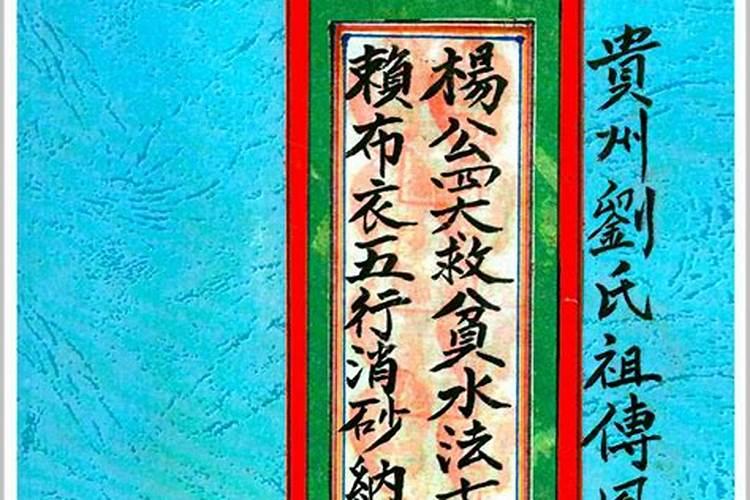 貴州劉氏祖傳
楊公四大救貧水法
賴布衣五行消砂納